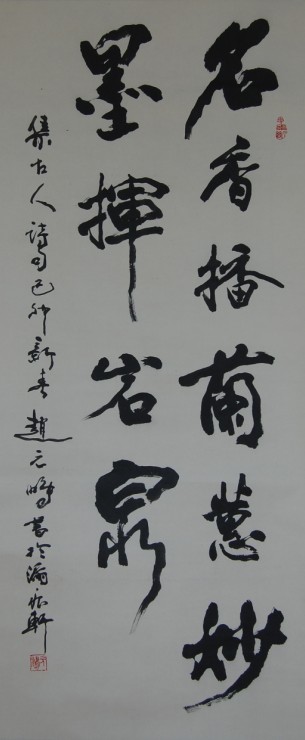 名香播蘭蕙妙
墨揮岩泉
集古人詩句己卯新春趙元鵬書於滴
軒